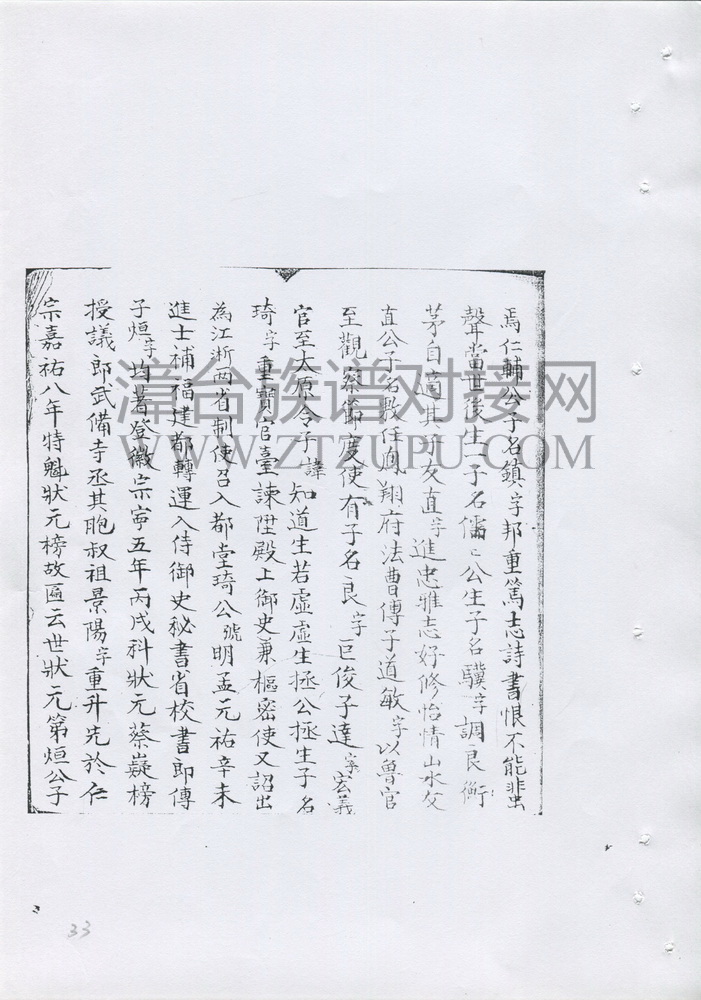 焉仁輔公子名鎮字邦重篤志詩書恨不能蜚
聲當世後生一子名儒〻公生子名驥字調良衡
茅自適其子友直字進忠雅志好修怡情山水父
直公子名敷任鳳翔府法曹傳子道敏字以魯官
至觀察節度使有子名良字巨俊子達字宏義
官至太原令子諱知道生若虛虛生拯公拯生子名
琦字重寶官臺諫陞殿上御史兼樞密使又詔出
為江淅兩省制使召入都堂琦公號明孟元祐辛未
進士補福建都轉運入侍御史秘書省校書郎傳
子烜字均著登徽宗寧五年丙戌科狀元蔡嶷榜
授議郎武備寺丞其胞叔祖景陽字重升先於仁
宗嘉祐八年特魁狀元榜故匾云世狀元第烜公子
漳台族谱对接网
WWW.ZTZUPU.COM
33